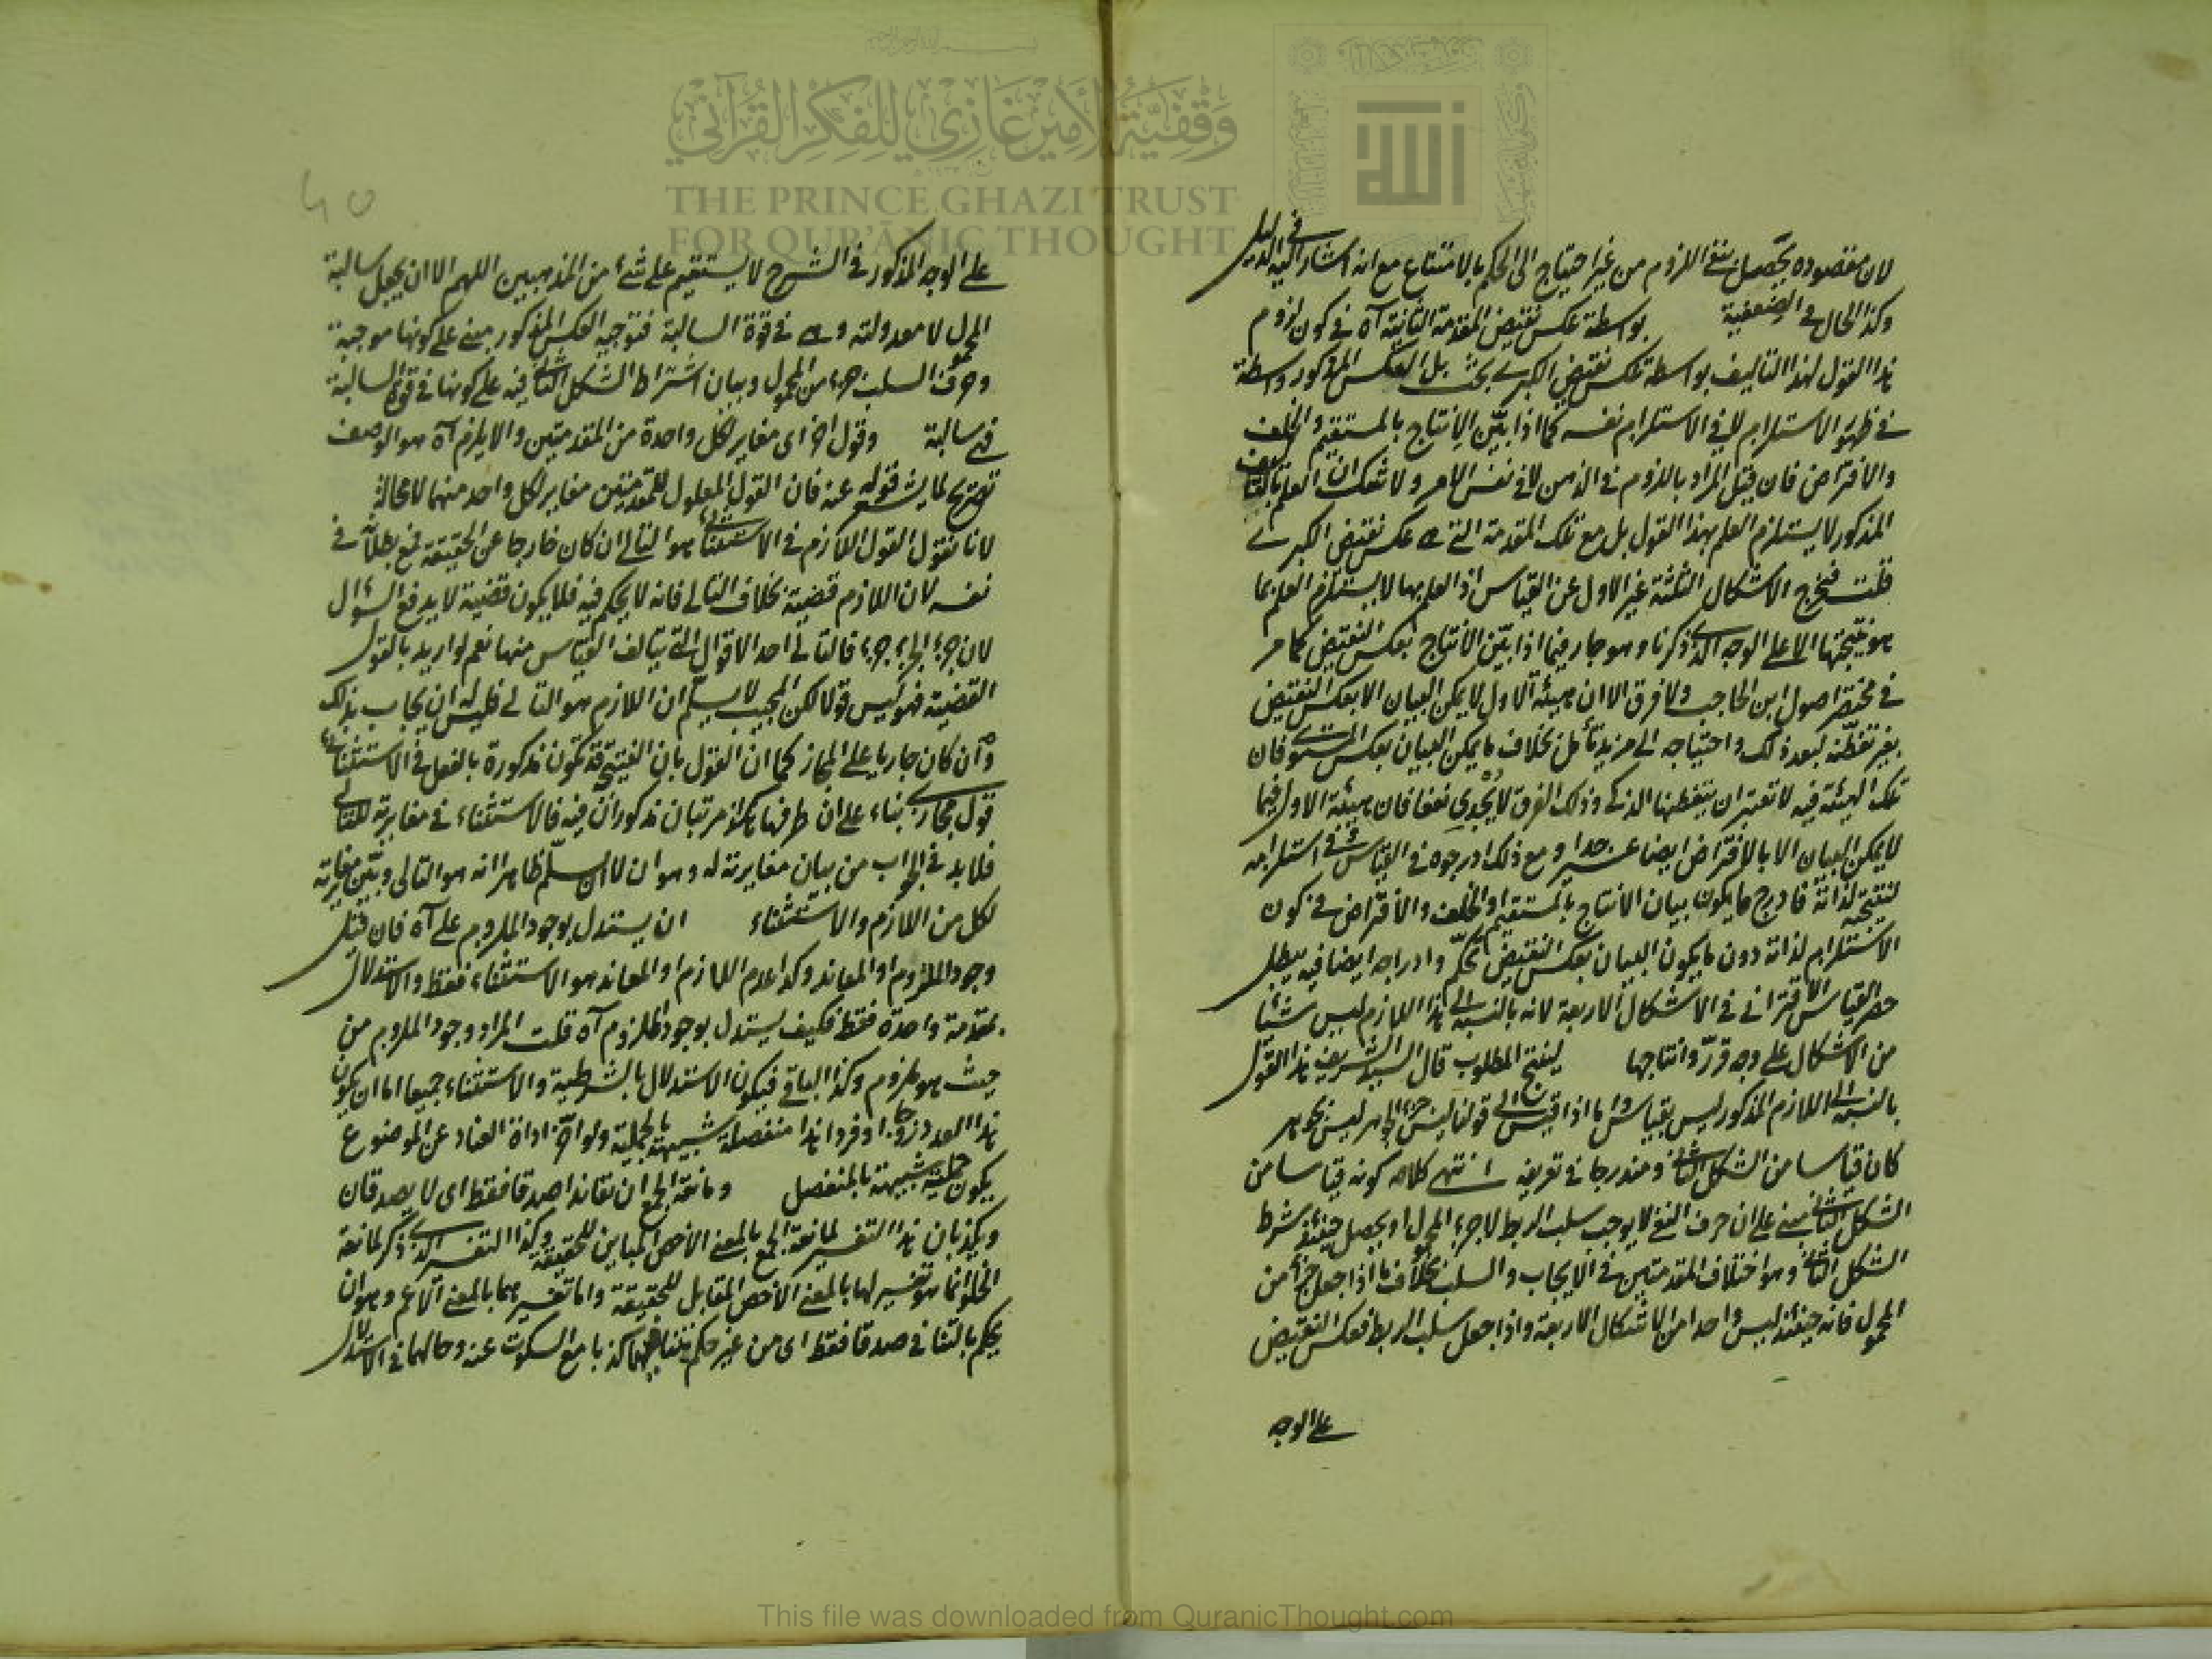 لان مقصوده يحصل بنفى اللزوم من غير احتياج الى الحكم بالامتناع مع انه اشار اليه فى الدليل
وكذا الحال فى الضعيفية بواسطة عكس نقيض المقدمة الثانية آه فى كون لزوم
هذا القول لهذا التاليف بواسطة عكس نقيض الكبرى بحث بل العكس المذكور واسطة
فى ظهور الاستلزام لا فى الاستلزام نفسه كما اذا بيّن الانتاج بالمستقيم والخلف
والافتراض فان قيل المراد باللزوم فى الذهن لا فى نفس الامر ولا شك ان العلم بالتاليف
المذكور لا يستلزم العلم بهذا القول بل مع تلك المقدمة التى هى عكس نقيض الكبرى
قلت فيخرج الاشكال الثلثة غير الاول عن القياس اذ العلم بها لا يستلزم العلم بما
هو نتيجتها الا على الوجه الذى ذكرنا وهو جار فيما اذا بيّن الانتاج بعكس النقيض كما مر
فى مختصر اصول ابن الحاجب ولا فرق الا ان هيئة الاول لا يمكن البيان الا بعكس النقيض
بغير تفطّنه لبعد ذلك واحتياجه الى مزيد تأمل بخلاف ما يمكن البيان بعكس المستوى فان
تلك الهيئة فيه لا تعتبر ان يتفطنها الذكى وذلك الفرق لا يجدى نفعا فان هيئة الاول فيما
لا يمكن البيان الا بالافتراض ايضا عسير جدا ومع ذلك ادرجوه فى القياس فى استلزامه
لنتيجته لذاته فادرج ما يكون بيان الانتاج بالمستقيم او الخلف والافتراض فى كون
الاستلزام لذاته دون ما يكون البيان بعكس النقيض تحكّم وادراجه ايضا فيه يبطل
حصر القياس الاقترانى فى الاشكال الاربعة لانه بالنسبة الى هذا اللازم ليس شيئا
من الاشكال على وجه قرّر وانتاجها لينتج المطلوب قال السيد الشريف هذا القول
بالنسبة الى اللازم المذكور ليس بقياس واما اذا قيس الى قولنا ليس جزء الجوهر ليس بجوهر
كان قياسا من الشكل الثانى ومندرجا فى تعريفه انتهى كلامه كونه قياسا من
الشكل الثانى مبنى على ان حرف النفى لا يوجب سلب الربط لا جزء المحمول او يحصل حينئذ شرط
الشكل الثانى وهو اختلاف المقدمتين فى الايجاب والسلب بخلاف ما اذا جعل جزأ من
المحمول فانه حينئذ ليس واحدا من الاشكال الاربعة واذا جعل سلب الربط فعكس النقيض
على الوجه
على الوجه المذكور فى الشرح لا يستقيم على شئ من المذهبين اللهم الا ان يجعل سالبة
المحمول لا معدولته وهى فى قوة السالبة فتوجيه العكس المذكور مبنى على كونها موجبة
وحرف السلب جزء من المحمول وبيان اشتراط الشكل الثانى فيه على كونها فى قوة السالبة
فهى سالبة وقول آخر اى مغاير لكل واحدة من المقدمتين والا يلزم آه هو الوصف
تصريح لما يشعر قوله عنه فان القول المعلول للمقدمتين مغاير لكل واحد منهما لا محالة
لانا نقول القول اللازم فى الاستثنائى هو التالى ان كان خارجا عن الحقيقة فمع بطلانه فى
نفسه لان اللازم قضية بخلاف التالى فانه لا يحكم فيه فلا يكون قضية لا يدفع السؤال
لان جزء الجزء جزء فالتالى احد الاقوال التى يتالف القياس منها نعم لو اريد بالقول
القضية فهو ليس قولا لكن المجيب لا يسلّم ان اللازم هو التالى فليس له ان يجاب بذلك
وان كان جاريا على المجاز كما ان القول بان النتيجة قد تكون مذكورة بالفعل فى الاستثنائى
قول مجازى بناء على ان طرفيها مرتبان مذكوران فيه فالاستثناء فى مغايرته للتالى
فلا بد فى الجواب من بيان مغايرته له وهو ان لا نسلّم ظاهرا انه هو التالى وبيّن مغايرته
لكل من اللازم والاستثناء ان يستدل بوجود الملزوم على آه فان قيل
وجود الملزوم او المعاند وكذا عدم اللازم او المعاند هو الاستثناء فقط والاستدلال
بمقدمة واحدة فقط فكيف يستدل بوجود الملزوم آه قلت المراد وجود الملزوم من
حيث هو ملزوم وكذا الباقى فيكون الاستدلال بالشرطية والاستثناء جميعا اما ان يكون
هذا العدد زوجا او فردا هذا منفصلة شبيهة بالحملية ولو اخّر اداة العناد عن الموضوع
يكون حملية شبيهة بالمنفصل ومانعة الجمع ان تعاندا صدقا فقط اى لا يصدقان
ويكذبان هذا التفسير لمانعة الجمع بالمعنى الاخص المباين للحقيقة وكذا التفسير الذى ذكر لمانعة
الخلو انما هو تفسير لها بالمعنى الاخص المقابل للحقيقة واما تفسيرهما بالمعنى الاعم وهو ان
يحكم بالتنافى صدقا فقط اى من غير حكم بتنافيهما كذبا مع السكوت عنه وحالهما فى الاستدلال
وقفية الأمير غازي للفكر القرآني
THE PRINCE GHAZI TRUST
FOR QUR'ĀNIC THOUGHT
This file was downloaded from QuranicThought.com